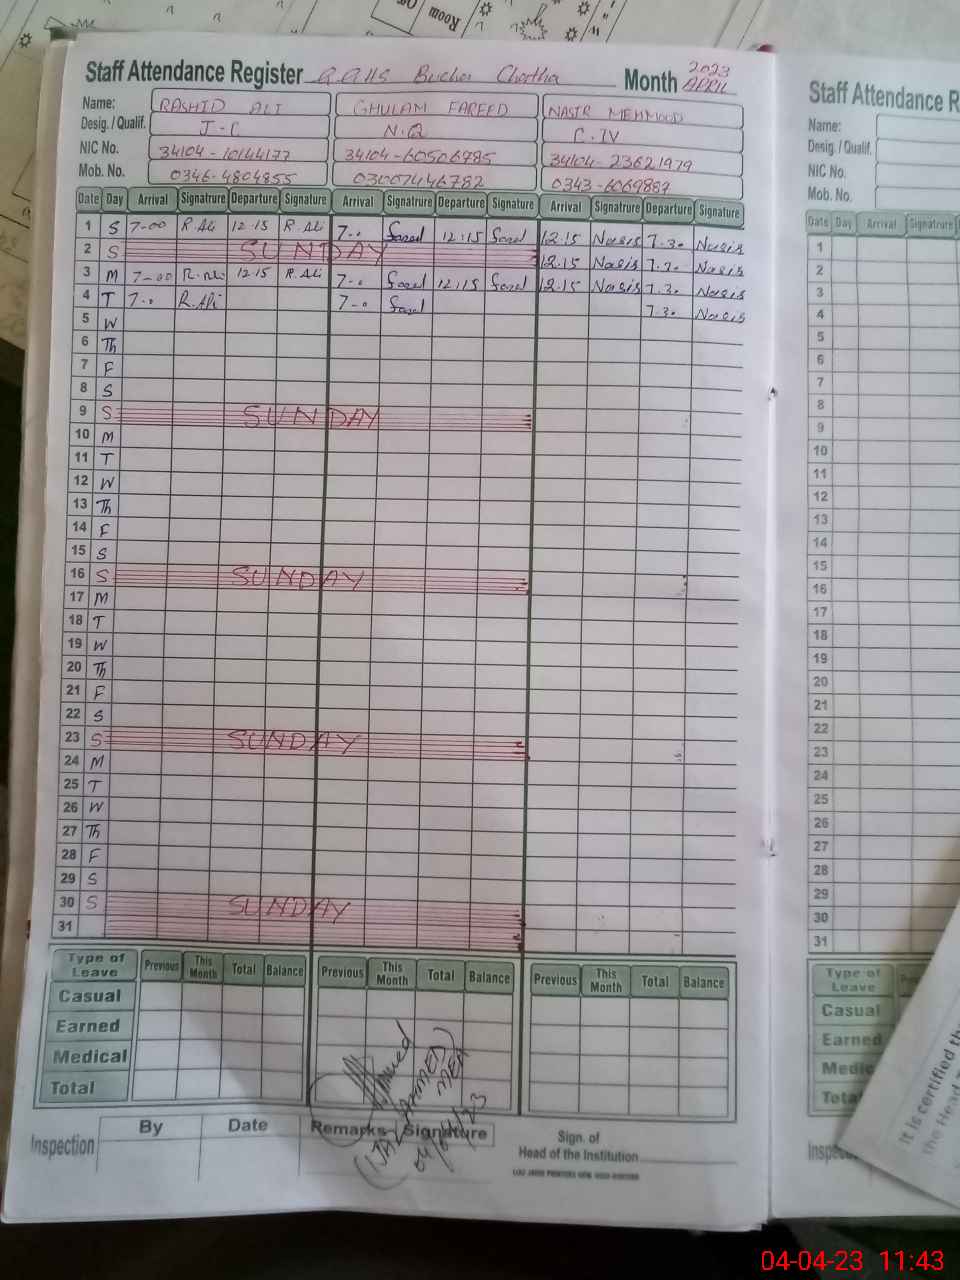 Room
Staff Attendance Register G.G.H.S Bucha Chattha Month APRIL 2023
Name: RASHID ALI GHULAM FAREED NASIR MEHMOOD
Desig. / Qualif. J-C N.Q C.IV
NIC No. 34104-10144177 34104-60506785 34104-23621979
Mob. No. 0346-4804855 03007446782 0343-6069887
Date Day Arrival Signature Departure Signature Arrival Signature Departure Signature Arrival Signature Departure Signature
1 S 7-00 R.Ali 12.15 R.Ali 7-0 Fareed 12.15 Fareed 12.15 Nasir 7.30 Nasir
2 S SUNDAY 12.15 Nasir 7.30 Nasir
3 M 7-00 R.Ali 12.15 R.Ali 7-0 Fareed 12.15 Fareed 12.15 Nasir 7.30 Nasir
4 T 7-0 R.Ali 7-0 Fareed 7.30 Nasir
5 W
6 Th
7 F
8 S
9 S SUNDAY
10 M
11 T
12 W
13 Th
14 F
15 S
16 S SUNDAY
17 M
18 T
19 W
20 Th
21 F
22 S
23 S SUNDAY
24 M
25 T
26 W
27 Th
28 F
29 S
30 S SUNDAY
31
Type of Leave Previous This Month Total Balance Previous This Month Total Balance Previous This Month Total Balance
Casual
Earned
Medical
Total
Inspection By Date Remarks / Signature
Sign. of
Head of the Institution
04/04/23
Staff Attendance R
Name:
Desig. / Qualif.
NIC No.
Mob. No.
Date Day Arrival Signature
1
2
3
4
5
6
7
8
9
10
11
12
13
14
15
16
17
18
19
20
21
22
23
24
25
26
27
28
29
30
31
Type of Leave
Casual
Earned
Medic
Tota
It is certified th
the Head
04-04-23 11:43